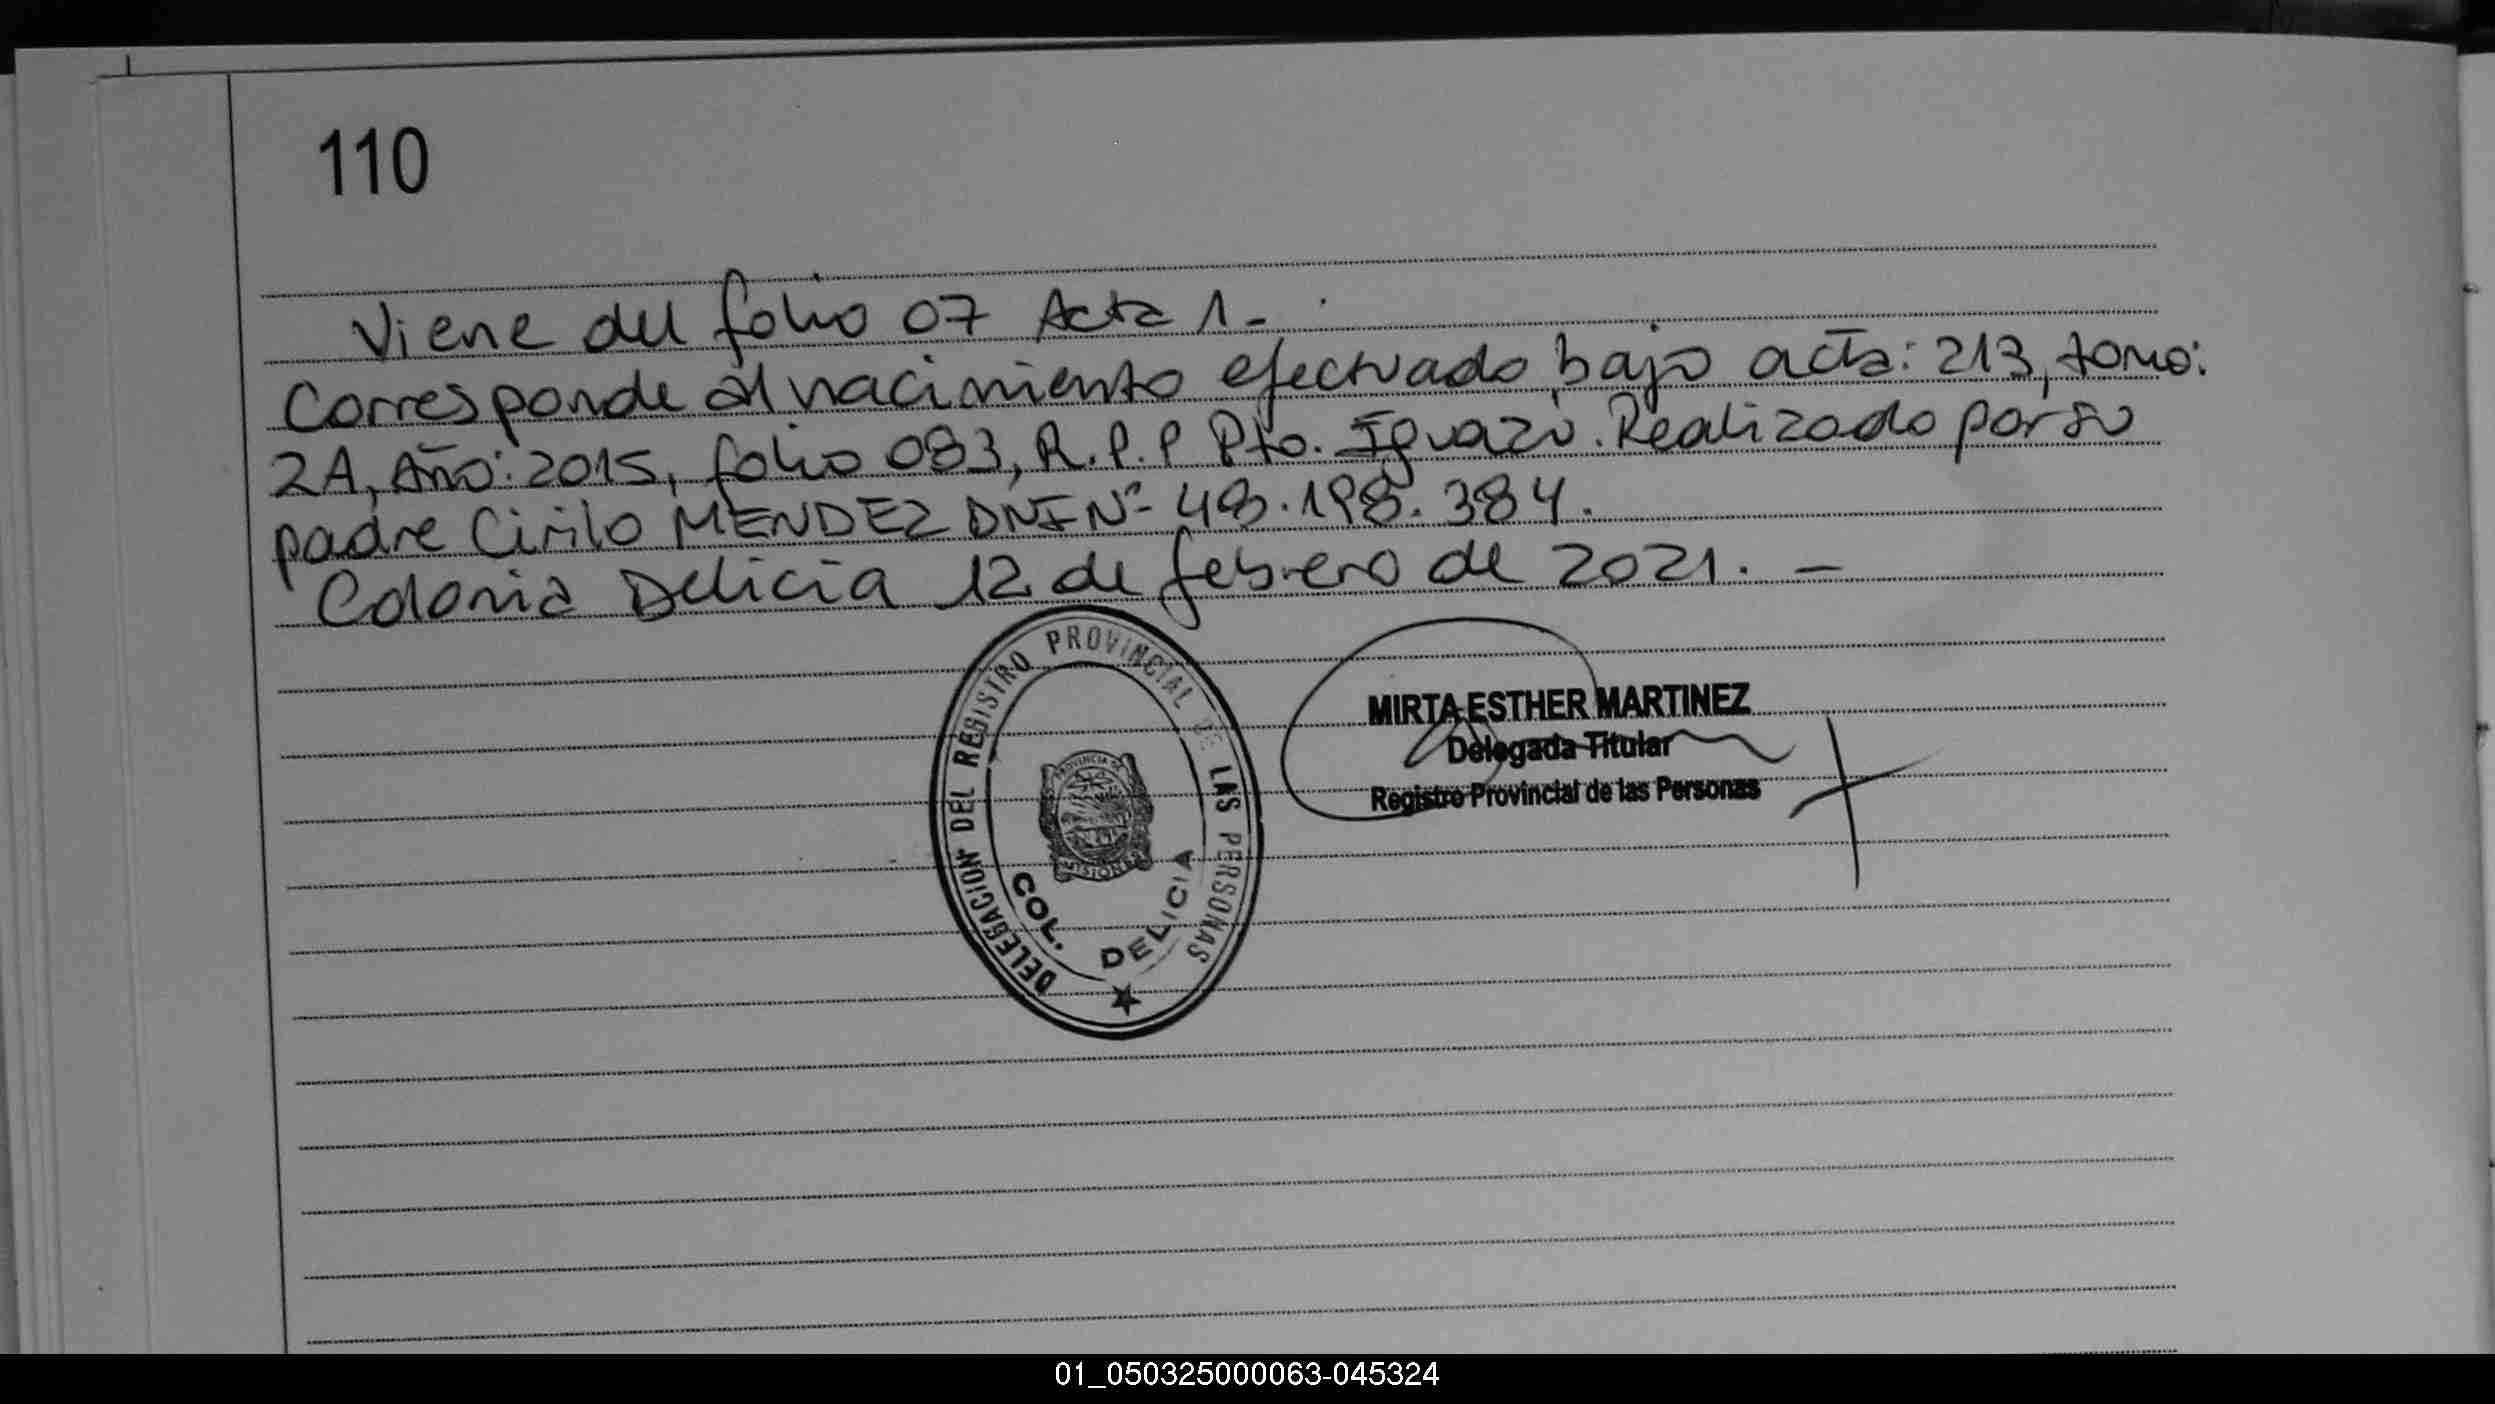 110
Viene del folio 07 Acta 1-
Corresponde al nacimiento efectuado bajo acta: 213, tomo:
2A, Año: 2015, folio 083, R.P.P Pto. Iguazú. Realizado por su
padre Cirilo MENDEZ DNI Nº 48.198.384.
Colonia Delicia 12 de febrero de 2021. —
DELEGACION DEL REGISTRO PROVINCIAL DE LAS PERSONAS
PROVINCIA DE
MISIONES
COL. DELICIA
MIRTA ESTHER MARTINEZ
Delegada Titular
Registro Provincial de las Personas
01_050325000063-045324